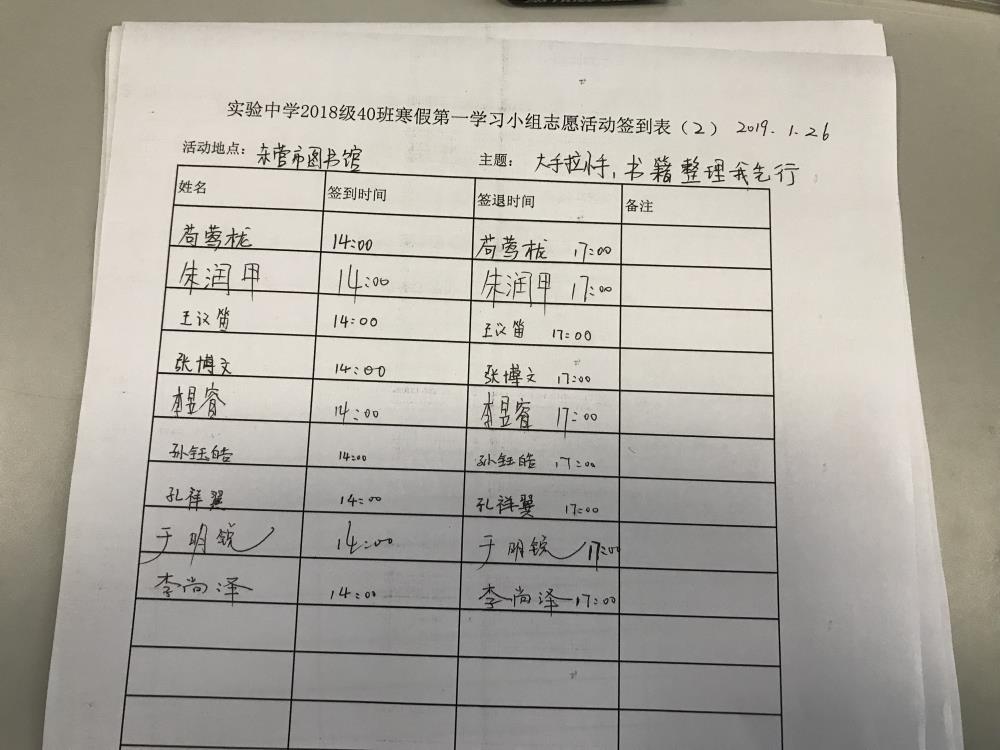 实验中学2018级40班寒假第一学习小组志愿活动签到表（2） 2019.1.26
活动地点：东营市图书馆 主题：大手拉小手，书籍整理我先行
姓名 签到时间 签退时间 备注
苟莺栊 14:00 苟莺栊 17:00
朱润甲 14:00 朱润甲 17:00
王议笛 14:00 王议笛 17:00
张博文 14:00 张博文 17:00
李昱睿 14:00 李昱睿 17:00
孙钰皓 14:00 孙钰皓 17:00
孔祥翼 14:00 孔祥翼 17:00
于明锐 14:00 于明锐 17:00
李尚泽 14:00 李尚泽 17:00